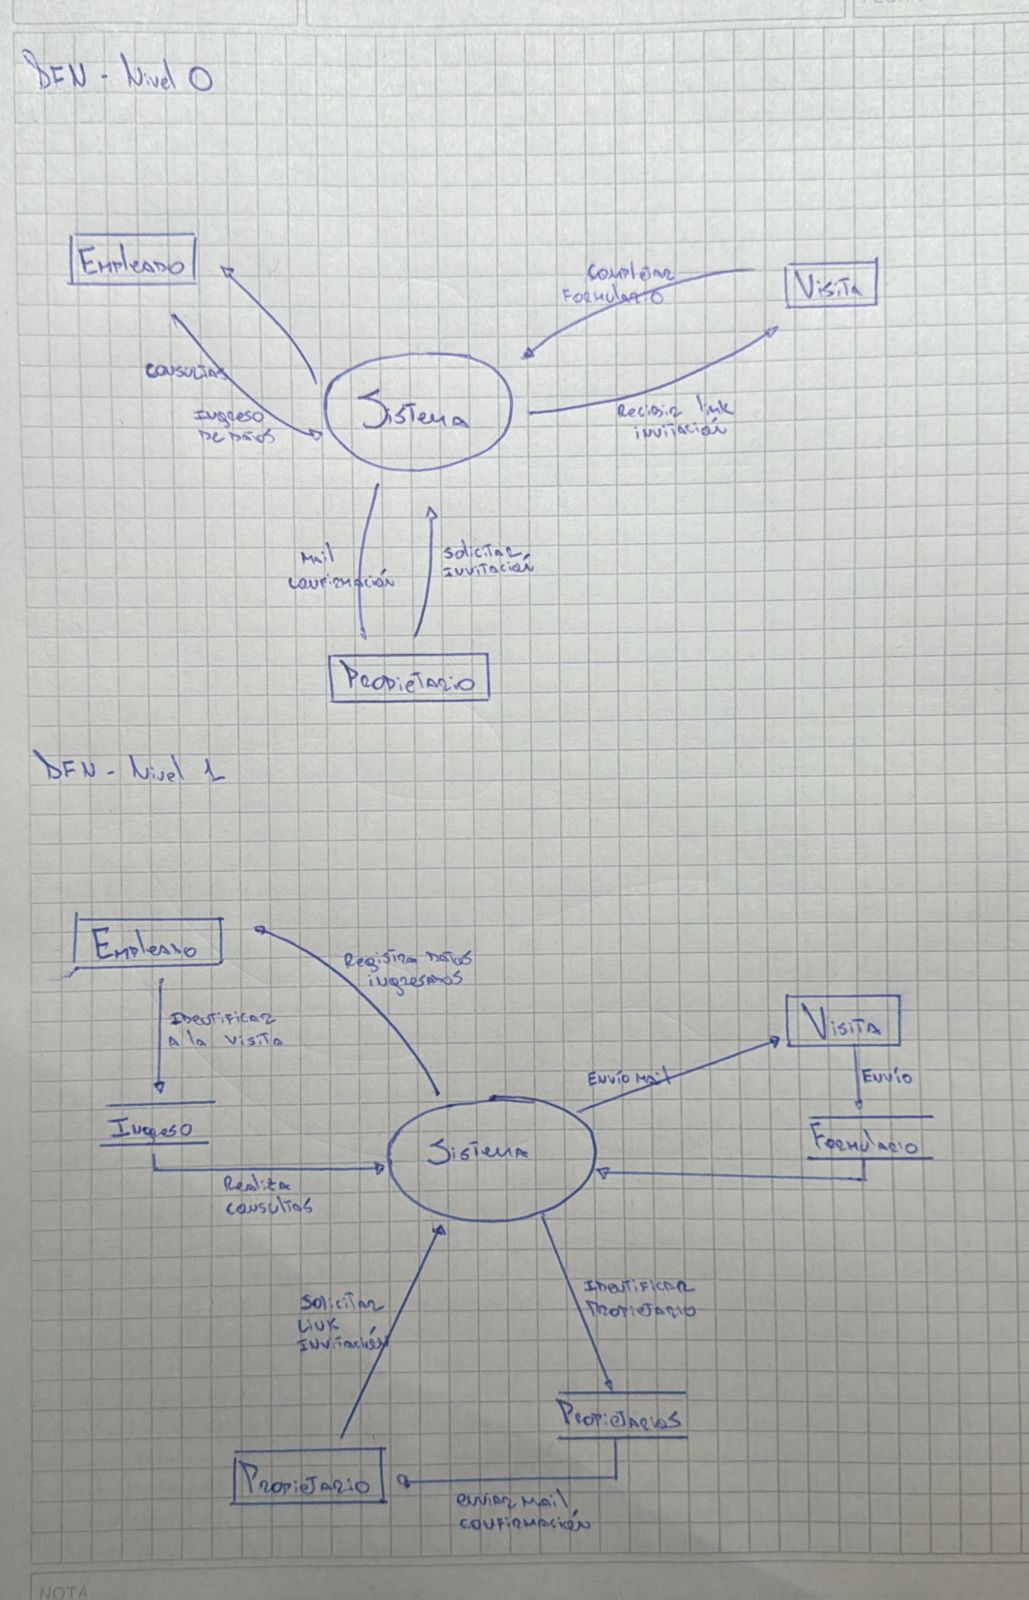 DFN - Nivel 0
Empleado
Completar
Formulario
Visita
Consultas
Ingreso
de datos
Sistema
Recibir link
invitación
Mail
confirmación
Solicitar
Invitación
Propietario
DFN - Nivel 1
Empleado
Registra datos
ingresados
Identificar
a la visita
Visita
Envío mail
Envío
Ingreso
Sistema
Formulario
Realiza
consultas
Solicitar
Link
Invitación
Identificar
Propietario
Propietarios
Propietario
enviar mail
confirmación
NOTA